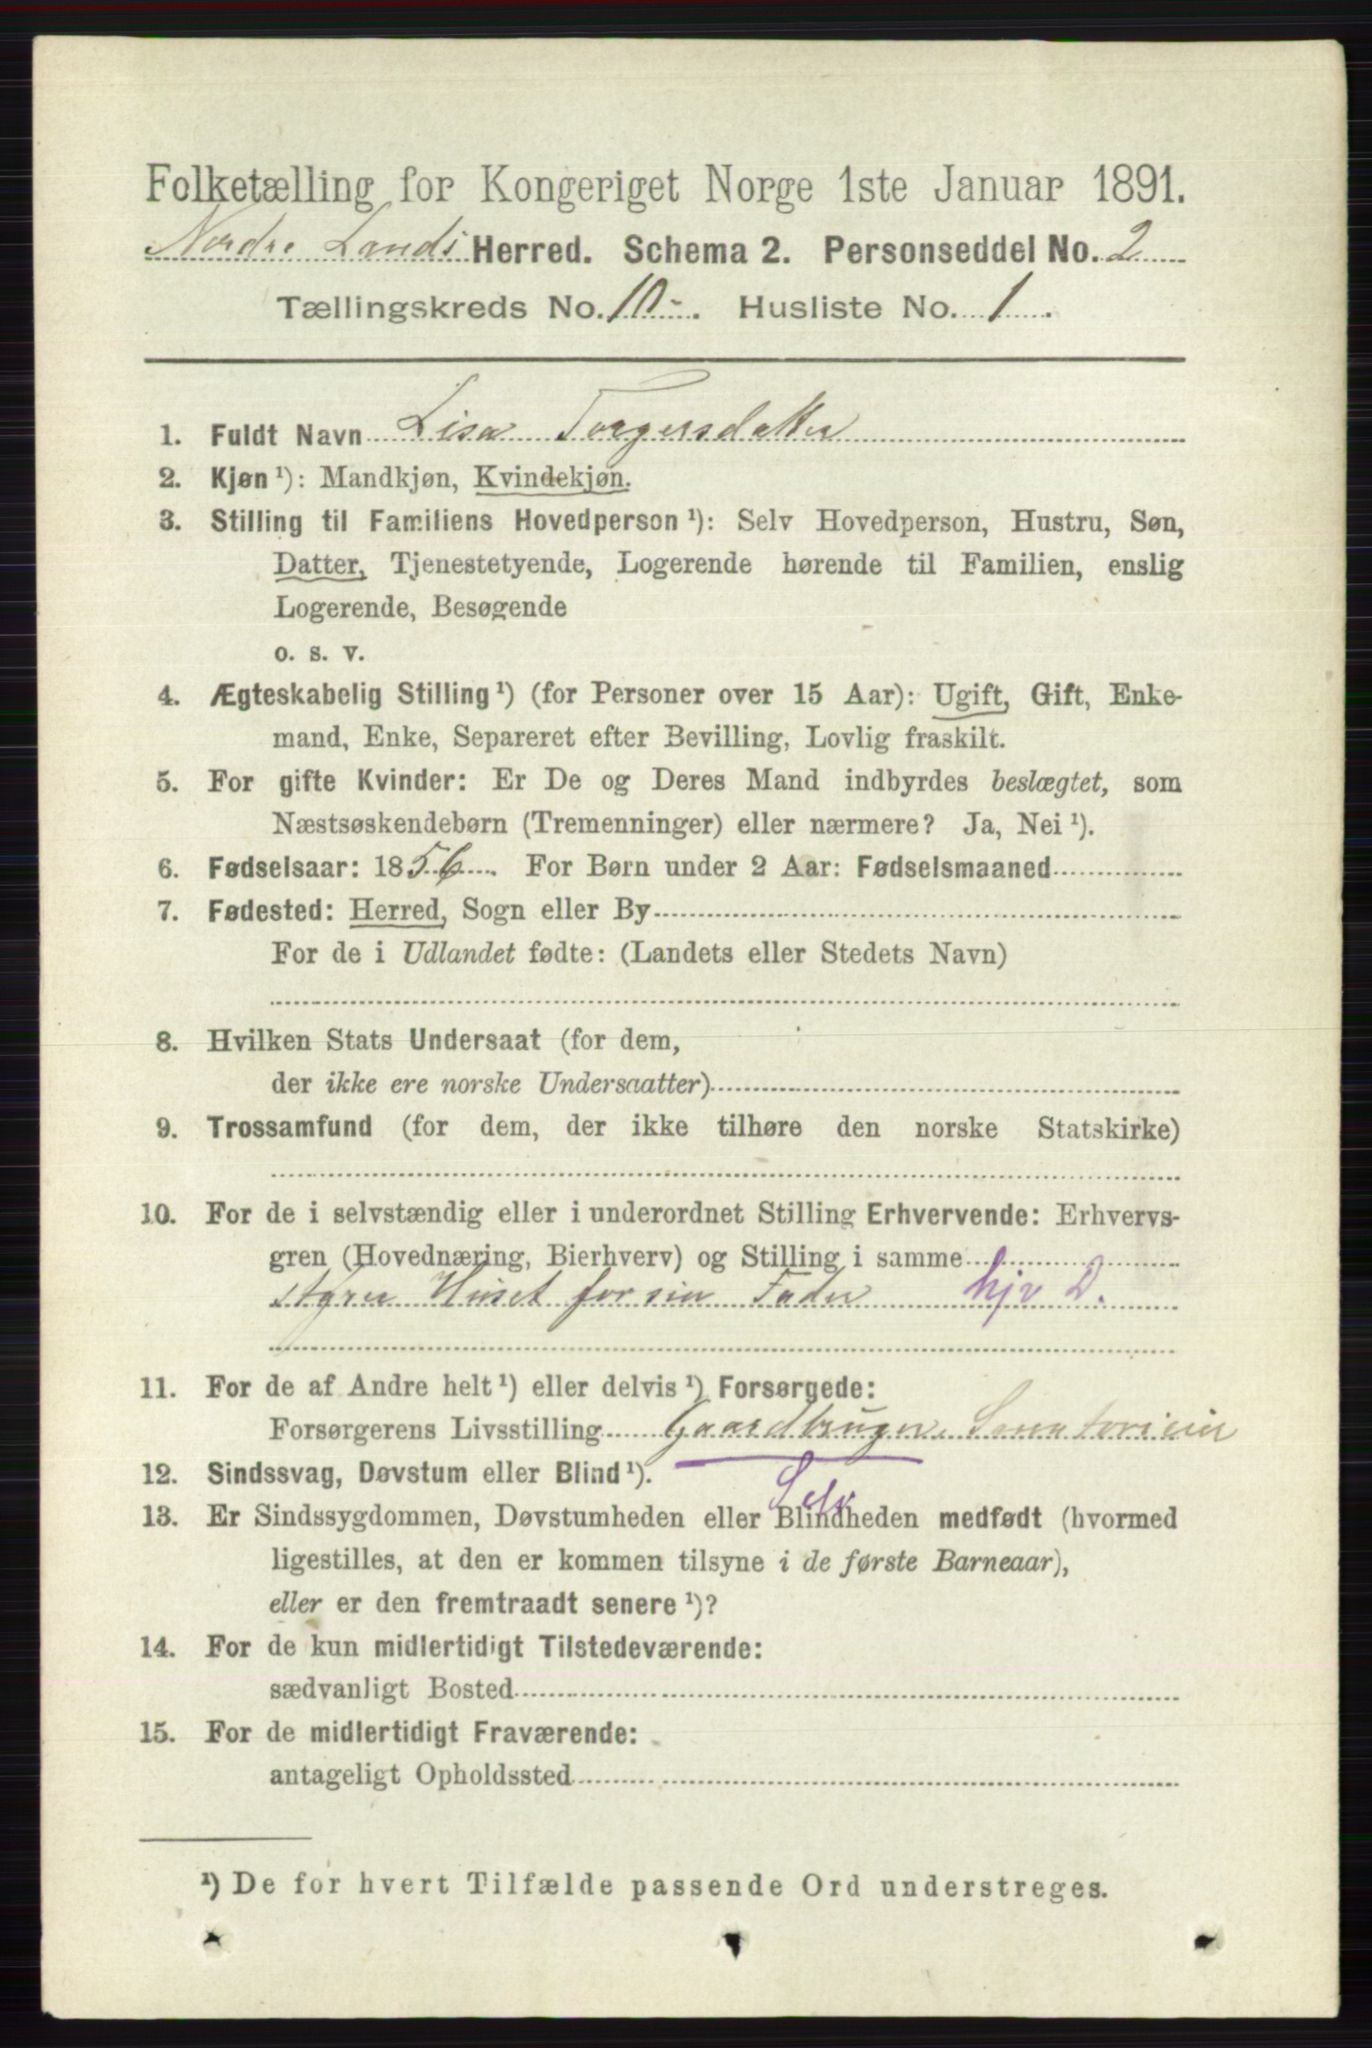 Folketælling for Kongeriget Norge 1ste Januar 1891.
Nordre Lands Herred. Schema 2. Personseddel No. 2
Tællingskreds No. 10 - . Husliste No. 1.
1. Fuldt Navn Lisa Torgersdatter
2. Kjøn ¹): Mandkjøn, Kvindekjøn.
3. Stilling til Familiens Hovedperson ¹): Selv Hovedperson, Hustru, Søn,
Datter, Tjenestetyende, Logerende hørende til Familien, enslig
Logerende, Besøgende
o. s. v.
4. Ægteskabelig Stilling ¹) (for Personer over 15 Aar): Ugift, Gift, Enke-
mand, Enke, Separeret efter Bevilling, Lovlig fraskilt.
5. For gifte Kvinder: Er De og Deres Mand indbyrdes beslægtet, som
Næstsøskendebørn (Tremenninger) eller nærmere? Ja, Nei ¹).
6. Fødselsaar: 1856. For Børn under 2 Aar: Fødselsmaaned
7. Fødested: Herred, Sogn eller By
For de i Udlandet fødte: (Landets eller Stedets Navn)
8. Hvilken Stats Undersaat (for dem,
der ikke ere norske Undersaatter)
9. Trossamfund (for dem, der ikke tilhøre den norske Statskirke)
10. For de i selvstændig eller i underordnet Stilling Erhvervende: Erhvervs-
gren (Hovednæring, Bierhverv) og Stilling i samme
styrer Huset for sin Fader hjv D.
11. For de af Andre helt ¹) eller delvis ¹) Forsørgede:
Forsørgerens Livsstilling Gaardbruger
12. Sindssvag, Døvstum eller Blind ¹).
Selv
13. Er Sindssygdommen, Døvstumheden eller Blindheden medfødt (hvormed
ligestilles, at den er kommen tilsyne i de første Barneaar),
eller er den fremtraadt senere ¹)?
14. For de kun midlertidigt Tilstedeværende:
sædvanligt Bosted
15. For de midlertidigt Fraværende:
antageligt Opholdssted
¹) De for hvert Tilfælde passende Ord understreges.